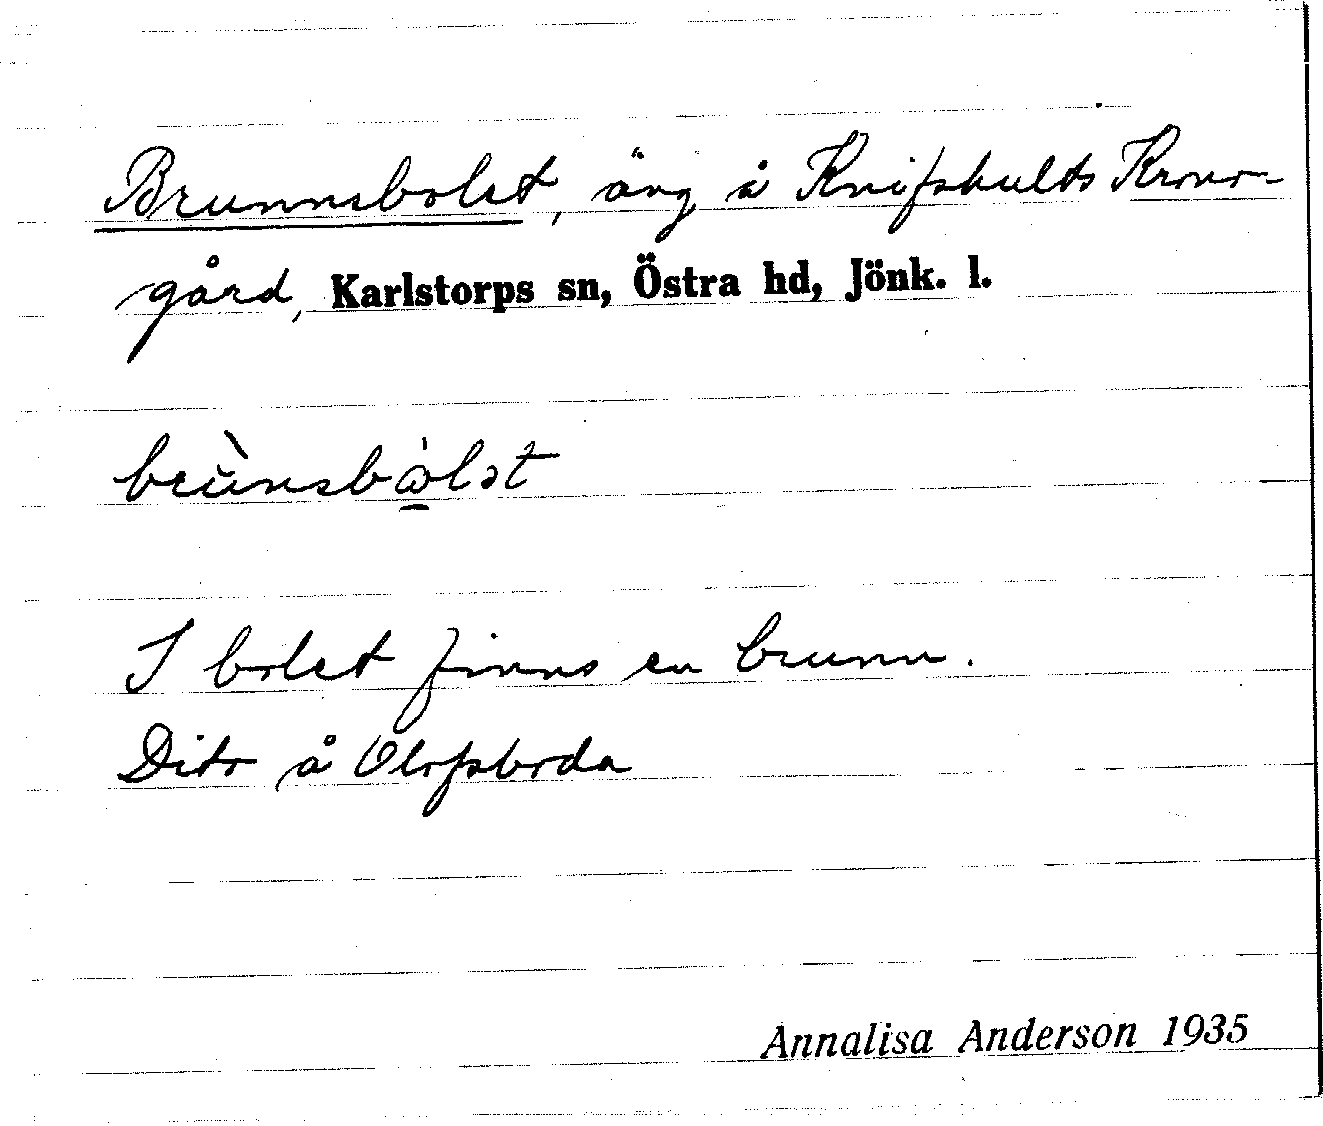 Brunnsbolet, äng å Knifshults Krono-
gård, Karlstorps sn, Östra hd, Jönk. l.
brùnsbὼ̲lət
I bolet finns en brunn.
Dito å Olofsboda
Annalisa Anderson 1935